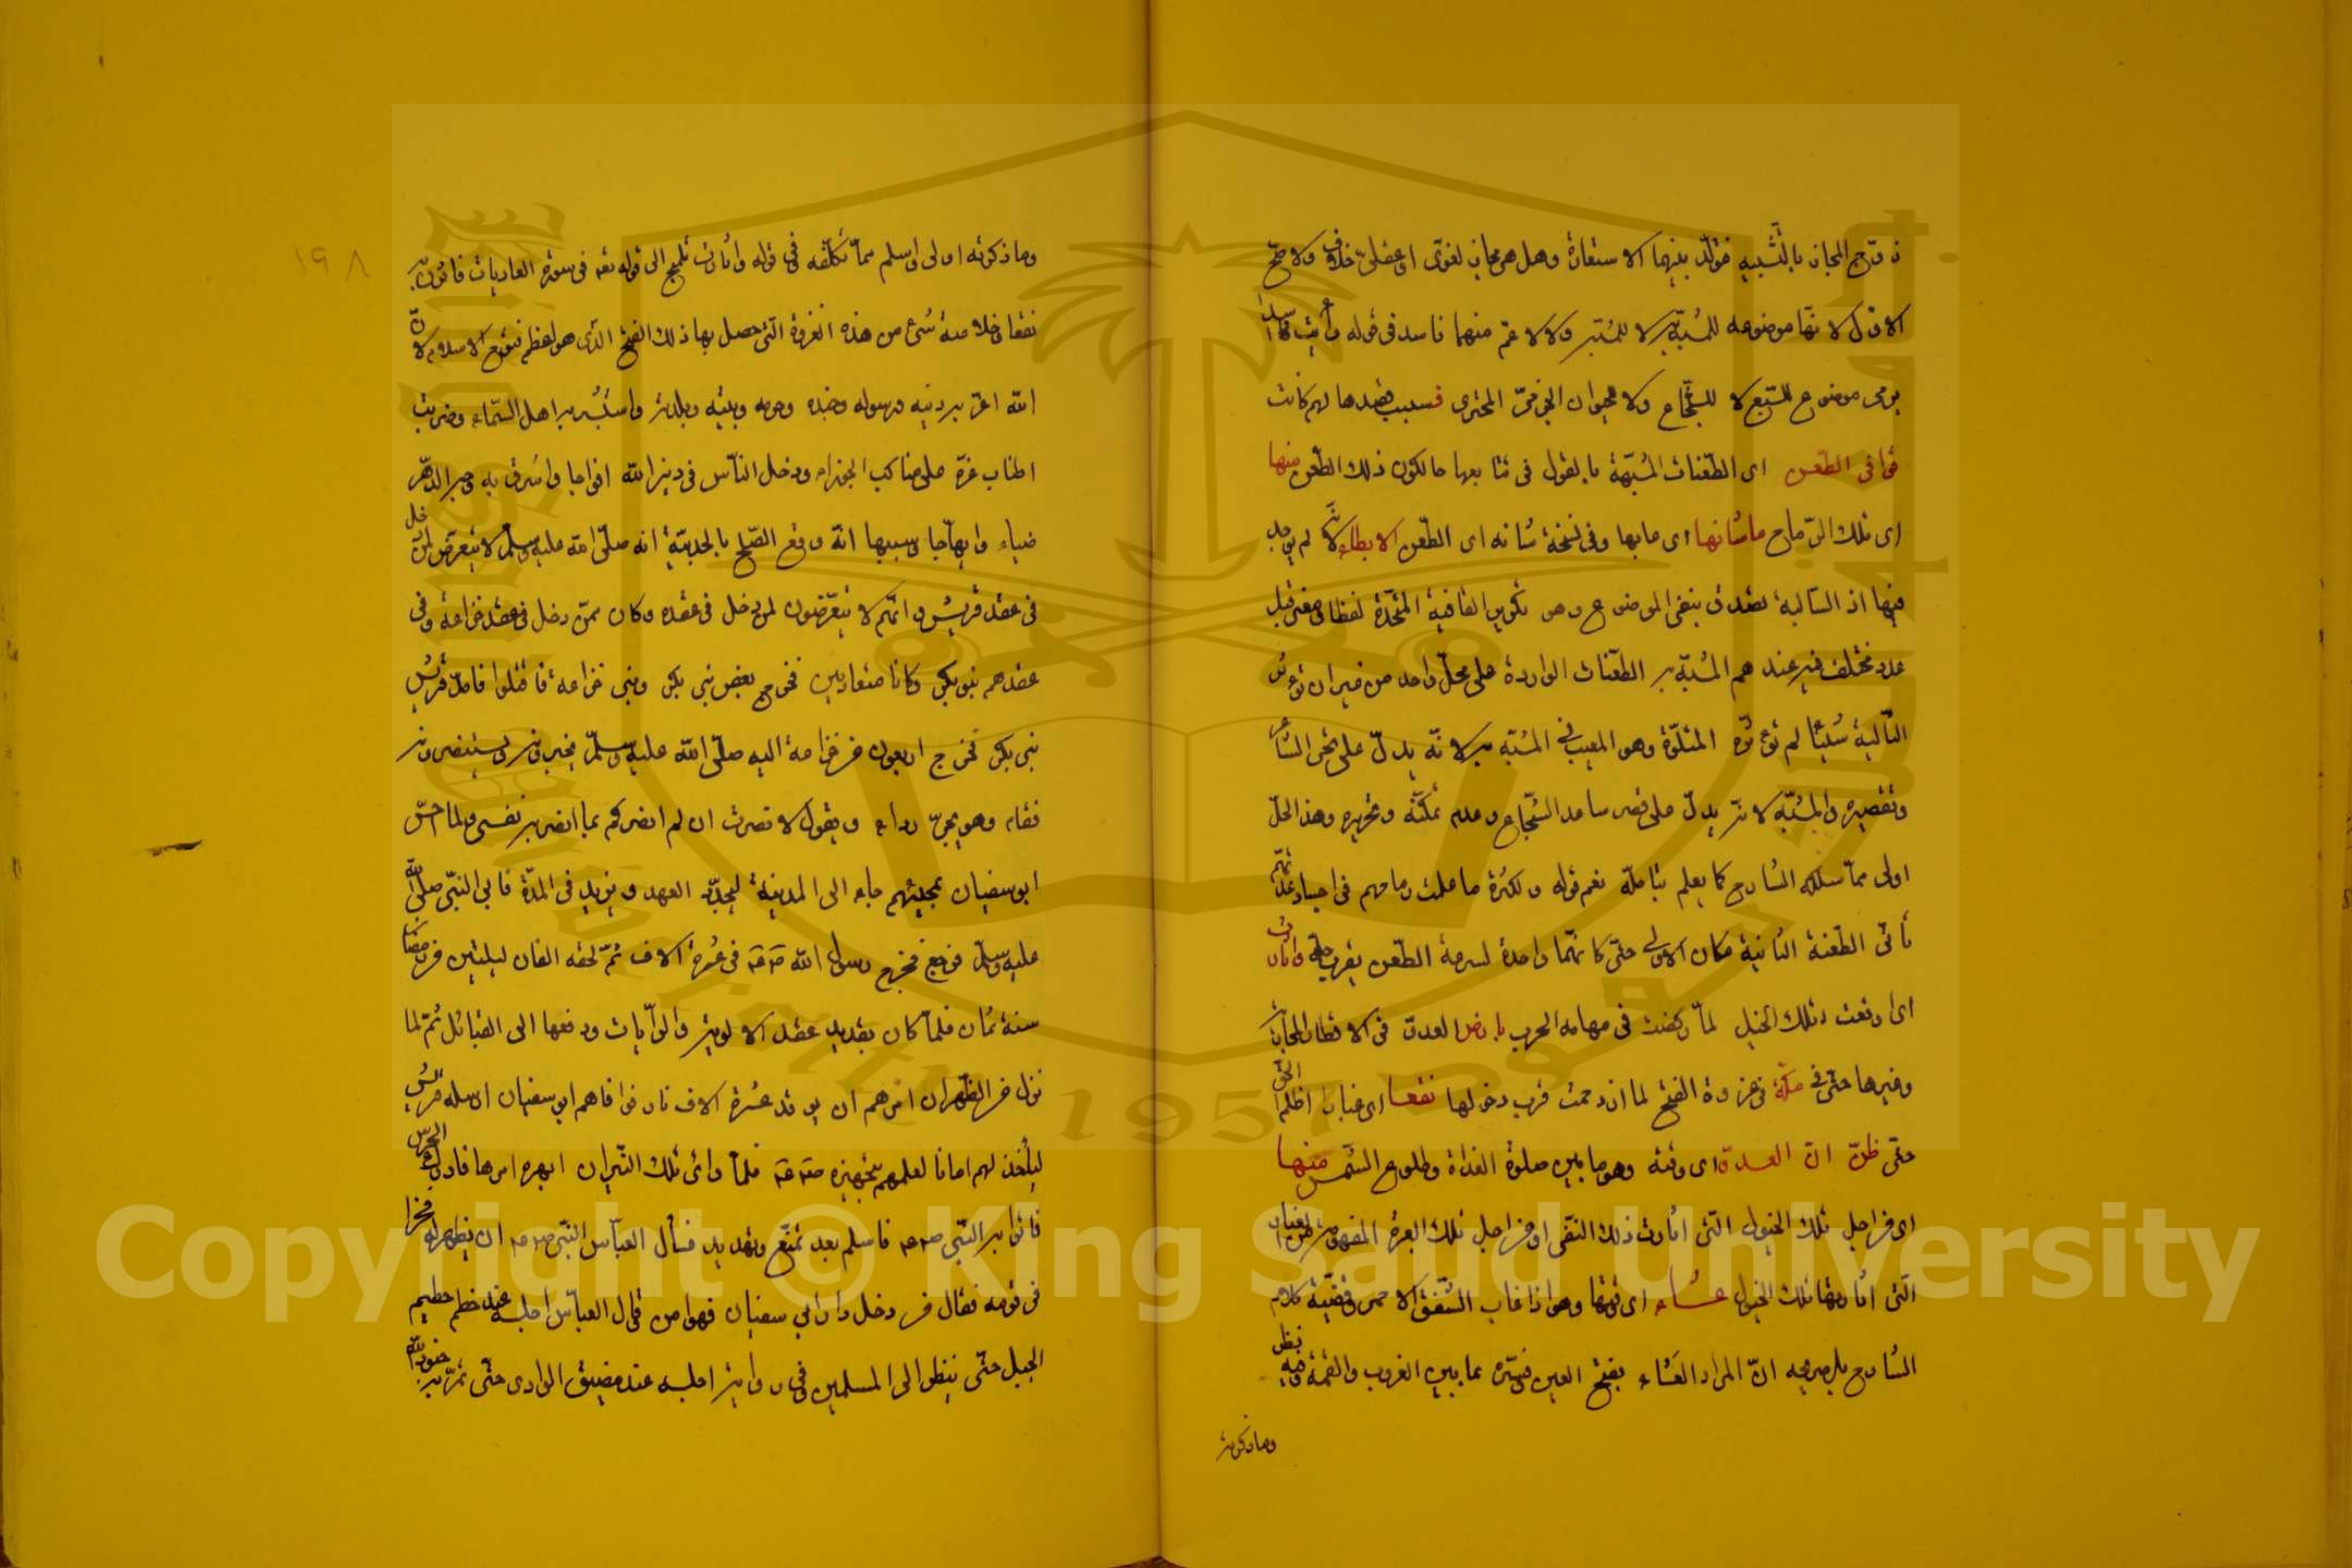 زوّج المجاز بالتشبيه فتولّد بينهما الاستعارة وهل هي مجاز لغوي او عقلي خلاف والاصح
الاول لانها موضوعه للمشبه به لا للمشبه ولا لاعم منهما فاسد في قوله رأيت اسدا
يرمي موضوع للسبع لا للشجاع ولا للحيوان الجري فسبب قصدها لهم كانت
قوافي الطعن اى الطعنات المشبهة بالقول في تتابعها حالكون ذلك الطعن منها
اى تلك الرماح ماشانها اى مابها وفي نسخة شانه اى الطعن الايطاء لانه لم يوجد
فيها اذ السالبة تصدق بنفي الموضوع وهو تكرير القافية المتحدة لفظا ومعنى قبل
عدد مختلف فيه عندهم المشبه به الطعنات الواردة على محل واحد من غير ان تؤثر
التالية شيئا لم تؤثره المتلوة وهو المعيب في المشبه به لانه يدل على عجز الشاعر
وتقصيره والمشبه لانه يدل على قصر ساعد الشجاع وعدم تمكنه وتحريره وهذا الحل
اولى مما سلكه الشارح كما يعلم بتأمله نعم قوله ولكثرة ما عملت رماحهم في اجساد عداهم
تأتي الطعنة الثانية مكان الاولى حتى كانهما واحدة لسرعة الطعن يقرب واثارت
اى اوقعت تلك الخيل لما ركضت في مهامه الحرب بارض العدو في الاقطار الحجازية
وغيرها حتى في مكة في غزوة الفتح لما ازدحمت قرب دخولها نقعا اى غبارا اظلم الجو
حتى ظن ان الغدوة اى وقته وهو ما بين صلوة الغداة وطلوع الشمس منها
اى من اجل تلك الخيول التي اثارت ذلك النقع او من اجل تلك الغبرة
التي اثارتها تلك الخيول عشاء اى وقتها وهو اذا غاب الشفق الاحمر وقضية كلام
الشارح بل صريحه ان المراد العشاء بفتح العين فسره بما بين الغروب والعتمة وفيه نظر
وما ذكرته
١٩٨
وما ذكرته اولى واسلم مما تكلفه وفي قوله واثارت تلميح الى قوله تعه في سورة العاديات فاثرن به
نقعا وخلاصة شئ من هذه الغزوة التي حصل بها ذلك الفتح الذي هو اعظم فتوح الاسلام لان
الله اعز به دينه ورسوله وجنده وحرمه وبيته وبلده واستبشر به اهل السماء وضربت
اطناب عزه على مناكب الجوزاء ودخل الناس في دين الله افواجا واشرق به وجه الدهر
ضياء وابتهاجا وسببها انه وقع الصلح بالحديبية انه صلى الله عليه وسلم لا يتعرض لمن دخل
في عقد قريش وانهم لا يتعرضون لمن دخل في عقده وكان ممن دخل في عقده خزاعة وفي
عقدهم بنو بكر وكانا متعاديين فخرج بعض بني بكر وبني خزاعة فاقتتلوا فامد قريش
بني بكر فخرج اربعون من خزاعة اليه صلى الله عليه وسلم يخبرونه ويستنصرونه
فقام وهو يجر رداءه ويقول لا نصرت ان لم انصركم بما انصر به نفسي ولما احس
ابو سفيان بمجيئهم جاء الى المدينة ليجدد العهد ويزيد في المدة فابى النبي صلى الله
عليه وسلم فرجع فخرج رسول الله في عشرة الاف ثم لحقه الفان لليلتين من رمضان
سنة ثمان فلما كان بقديد عقد الالوية والرايات ودفعها الى القبائل ثم لما
نزل مر الظهران امرهم ان يوقد عشرة الاف نار فوافاهم ابو سفيان ارسله قريش
ليأخذ لهم امانا لعلمهم بتجهيزه فلما راى تلك النيران ابهره امرها فادركه الحرس
فاتوا به النبي فاسلم بعد تمنع وتهديد فسأل العباس النبي ان يظهر له فخرا
في قومه فقال من دخل دار ابي سفيان فهو امن وقال العباس احبسه عند خطم
الجبل حتى ينظر الى المسلمين وفي رواية احبسه عند مضيق الوادي حتى تمر به جنود الله
Copyright © King Saud University
1957